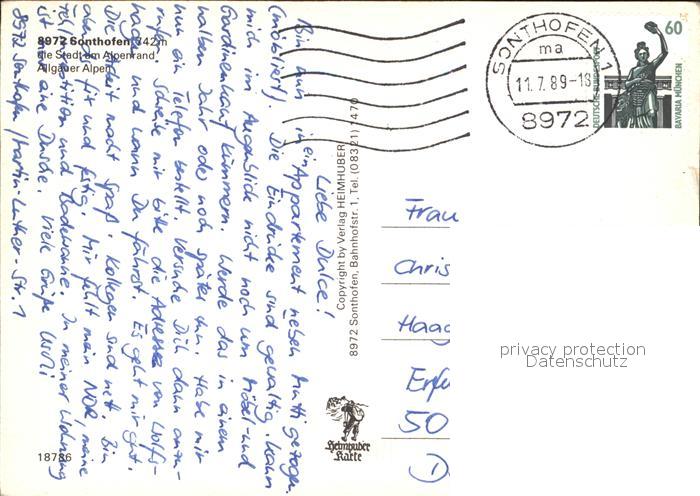 8972 Sonthofen 742 m
die Stadt am Alpenrand
Allgäuer Alpen
SONTHOFEN 1
ma
11.7.89-18
8972
60
DEUTSCHE BUNDESPOST
BAVARIA MÜNCHEN
Liebe Dulce!
Bin nun in ein Appartement neben Mutti gezogen
(mobliert). Die Eindrücke sind gewaltig. Kann
mich im Augenblick nicht noch um Möbel- und
Gardinenkauf kümmern. Werde das in einem
halben Jahr oder noch später tun. Habe mir
nun ein Telefon bestellt. Versuche Dich dann anzu-
rufen. Schreibe mir bitte die Adresse von Wolfs-
hagen und wann Du fährst. Es geht mir gut.
Die Arbeit macht Spaß. Kollegen sind nett. Bin
aber fit und fertig. Mir fehlt mein NDR, meine
tition und Badewanne. In meiner Wohnung
ist nur eine Dusche. Viele Grüße Uschi
8972 Sonthofen / Martin-Luther-Str. 1
Copyright by Verlag HEIMHUBER
8972 Sonthofen, Bahnhofstr. 1, Tel. (08321) 7470
Frau
Chris
Haag
Erfu
50
D
privacy protection
Datenschutz
Heimhuber
Karte
18786